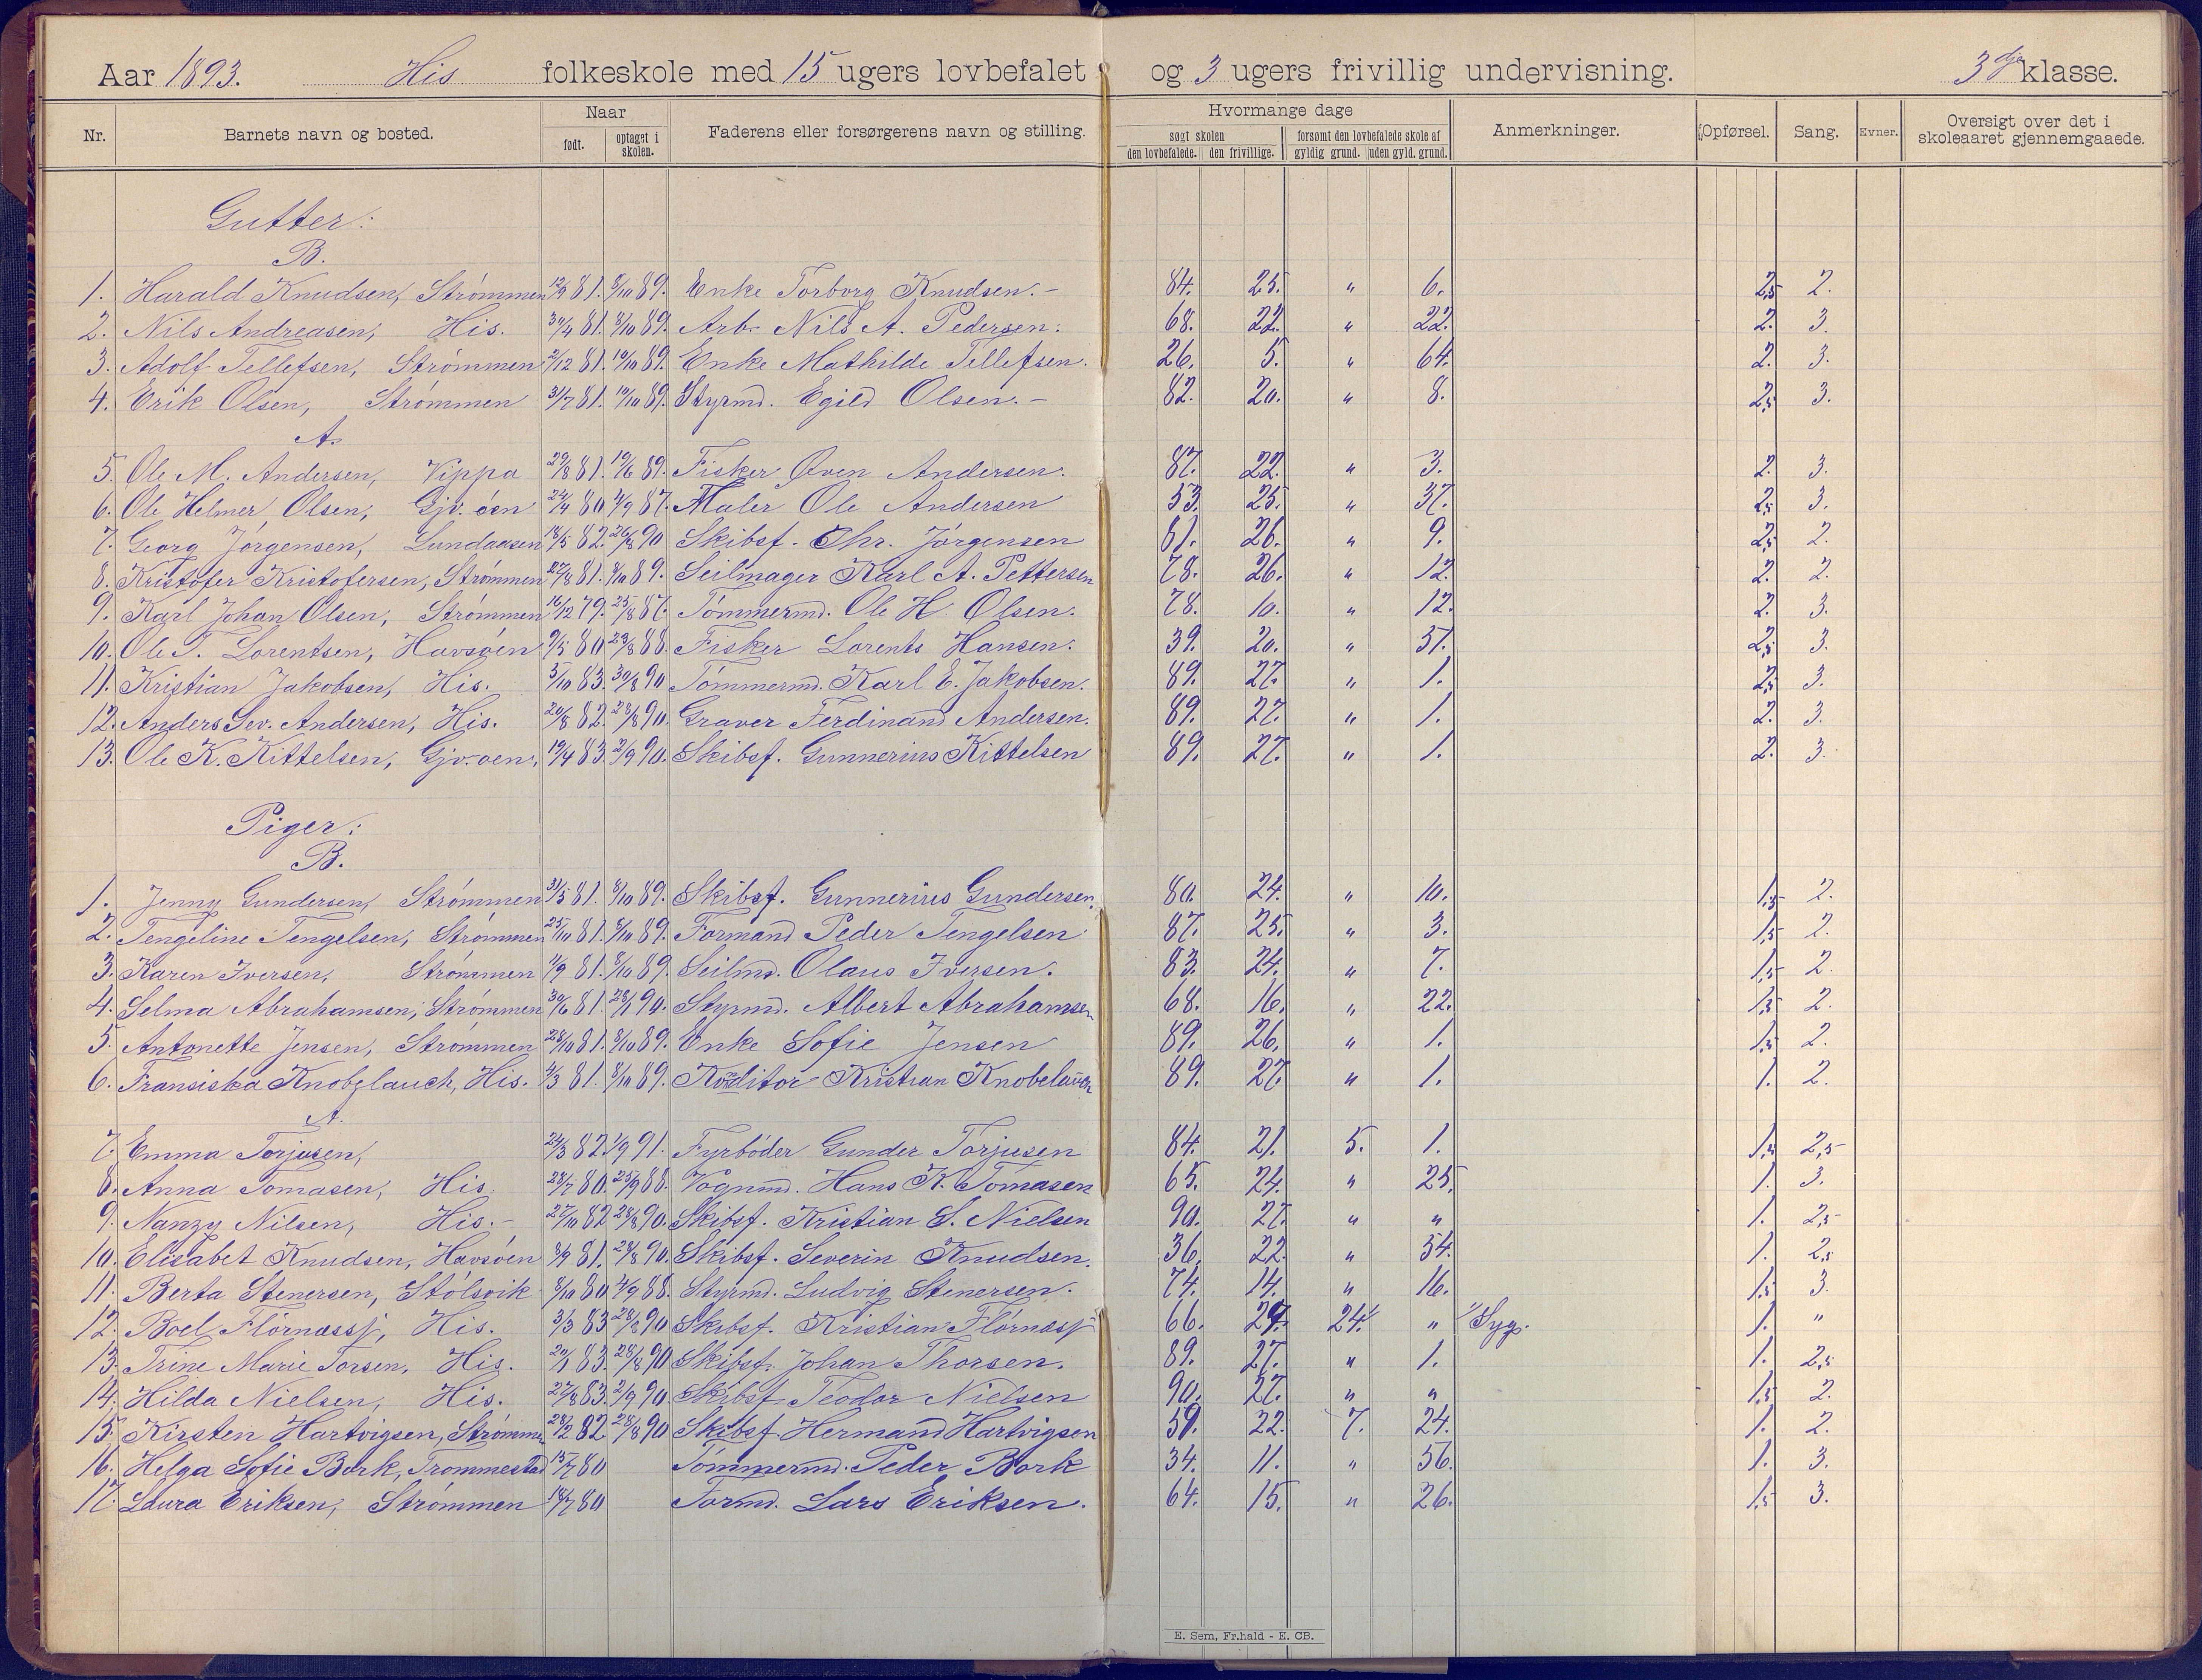 Aar 1893. His folkeskole med 15 ugers lovbefalet og 3 ugers frivillig undervisning. 3dje klasse.
Nr. Barnets navn og bosted. Naar født. optaget i skolen. Faderens eller forsørgerens navn og stilling. Hvormange dage søgt skolen den lovbefalede. den frivillige. forsømt den lovbefalede skole af gyldig grund. uden gyld. grund. Anmerkninger. Opførsel. Sang. Evner. Oversigt over det i skoleaaret gjennemgaaede.
Gutter:
B.
1. Harald Knudsen, Strømmen 12/9 81. 8/10 89. Enke Torborg Knudsen. - 84. 25. " 6. 2,5 2.
2. Nils Andreasen, His. 30/4 81. 8/10 89. Arb. Nils A. Pedersen. 68. 22. " 22. 2. 3.
3. Adolf Tellefsen, Strømmen 2/12 81. 10/10 89. Enke Mathilde Tellefsen. 26. 5. " 64. 2. 3.
4. Erik Olsen, Strømmen 31/7 81. 10/10 89. Styrmd. Egild Olsen. - 82. 20. " 8. 2,5 3.
A.
5. Ole M. Andersen, Vippa 29/8 81. 19/6 89. Fisker Oven Andersen. 87. 22. " 3. 2. 3.
6. Ole Helmer Olsen, Gjv. øen 24/4 80 4/9 87. Maler Ole Andersen 53. 25. " 37. 2,5 3.
7. Georg Jørgensen, Lundaasen 18/5 82. 26/8 90 Skibsf. Chr. Jørgensen 81. 26. " 9. 2,5 2.
8. Kristofer Kristofersen, Strømmen 27/8 81. 8/10 89. Seilmager Karl A. Pettersen 78. 26. " 12. 2. 2.
9. Karl Johan Olsen, Strømmen 16/12 79. 25/8 87. Tømmermd. Ole H. Olsen. 78. 10. " 12. 2. 3.
10. Ole T. Lorentsen, Havsøen 9/5 80 23/8 88. Fisker Lorents Hansen. 39. 20. " 51. 2,5 3.
11. Kristian Jakobsen, His. 5/10 83. 30/8 90 Tømmermd. Karl E. Jakobsen. 89. 27. " 1. 2,5 3.
12. Anders Sev. Andersen, His. 20/8 82. 28/8 90. Graver Ferdinand Andersen. 89. 27. " 1. 2. 3.
13. Ole K. Kittelsen, Gjv. øen, 19/4 83. 2/9 90. Skibsf. Gunnerius Kittelsen 89. 27. " 1. 2. 3.
Piger:
B.
1. Jenny Gundersen, Strømmen 31/5 81. 8/10 89. Skibsf. Gunnerius Gundersen. 80. 24. " 10. 1,5 2.
2. Tengeline Tengelsen, Strømmen 25/10 81. 8/10 89. Formand Peder Tengelsen 87. 25. " 3. 1,5 2.
3. Karen Iversen, Strømmen 11/9 81. 8/10 89. Seilmd. Olaus Iversen. 83. 24. " 7. 1,5 2.
4. Selma Abrahamsen, Strømmen 30/6 81. 28/1 90. Styrmd. Albert Abrahamsen 68. 16. " 22. 1,5 2.
5. Antonette Jensen, Strømmen 28/10 81. 8/10 89. Enke Sofie Jensen 89. 26. " 1. 1,5 2.
6. Fransiska Knobelauch, His. 4/3 81. 8/10 89. Konditor Kristian Knobelauch 89. 27. " 1. 1. 2.
A.
7. Emma Torjusen, 24/3 82. 1/9 91. Fyrbøder Gunder Torjusen 84. 21. 5. 1. 1,5 2,5
8. Anna Tomasen, His. 28/7 80. 25/9 88. Vognmd. Hans K. Tomasen 65. 24. " 25. 1. 3.
9. Nanzy Nilsen, His. - 27/10 82 28/8 90. Skibsf. Kristian S. Nielsen 90. 27. " " 1. 2,5
10. Elisabet Knudsen, Havsøen 8/9 81. 28/8 90. Skibsf. Severin Knudsen. 36. 22. " 54. 1. 2,5
11. Berta Stenersen, Stølsvik 8/10 80 4/9 88. Styrmd. Ludvig Stenersen. 74. 14. " 16. 1,5 3.
12. Boel Flørnæssj, His. 3/3 83 28/8 90 Skibsf. Kristian Flørnæssj 66. 27. 24.1/ " 1/ Syg. 1. "
13. Trine Marie Torsen, His. 20/1 83. 28/8 90 Skibsf. Johan Thorsen. 89. 27. " 1. 1. 2,5
14. Hilda Nielsen, His. 27/8 83. 2/9 90. Skibsf. Teodor Nielsen 90. 27. " " 1,5 2.
15. Kirsten Hartvigsen, Strømmen 28/2 82. 28/8 90 Skibsf. Hermand Hartvigsen 59. 22. 7. 24. 1. 2.
16. Helga Sofie Bork, Trommestad 13/7 80 Tømmermd. Peder Bork 34. 11. " 56. 1. 3.
17. Laura Eriksen, Strømmen 18/7 80 Formd. Lars Eriksen. 64. 15. " 26. 1,5 3.
E. Sem, Fr.hald - E. CB.